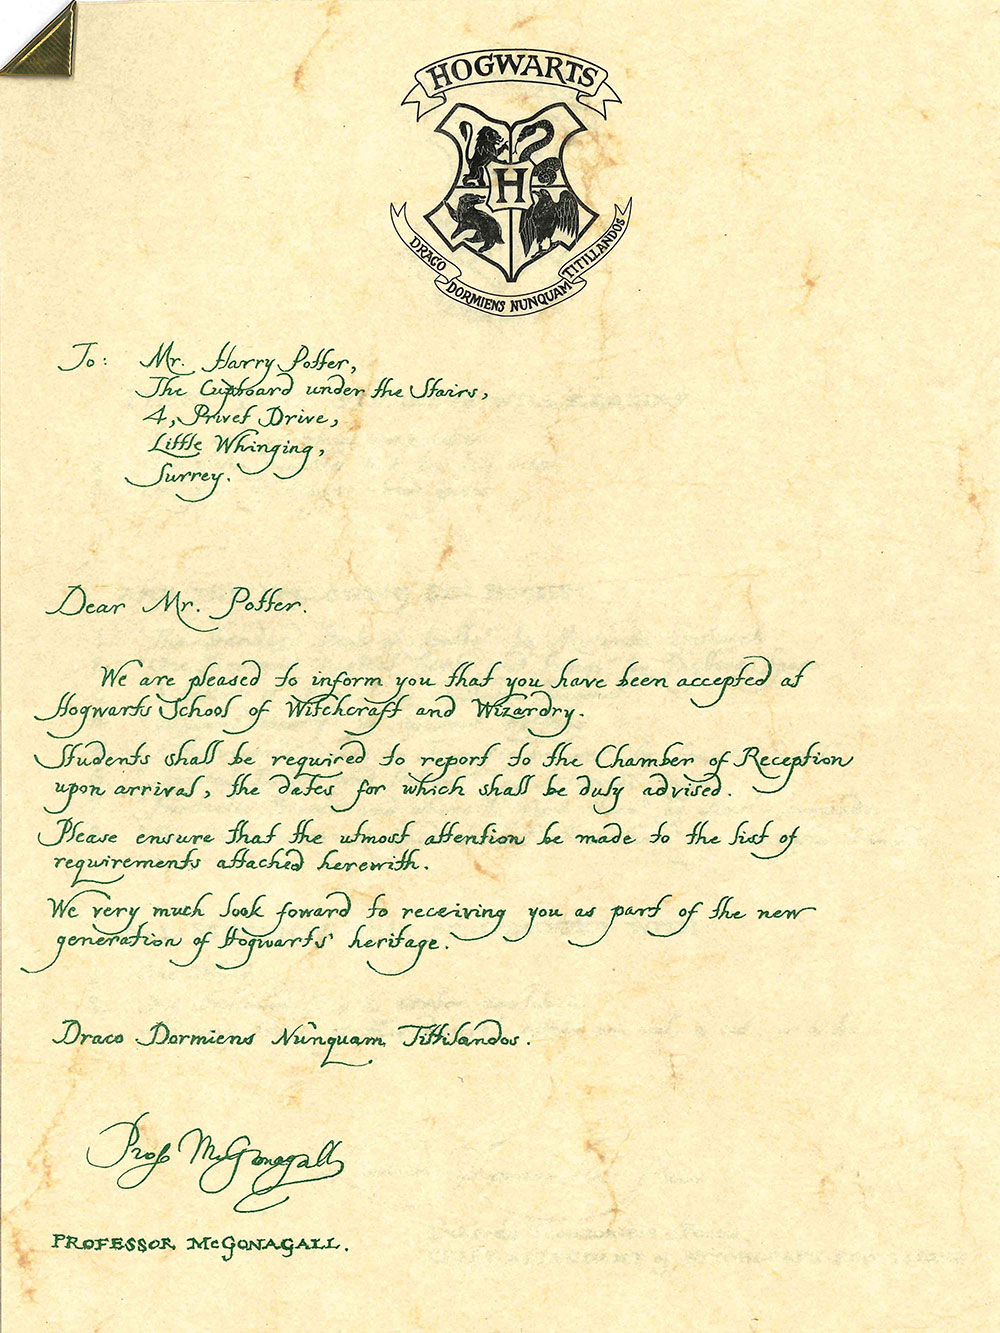 HOGWARTS
H
DRACO DORMIENS NUNQUAM TITILLANDOS
To: Mr. Harry Potter,
The Cupboard under the Stairs,
4, Privet Drive,
Little Whinging,
Surrey.
Dear Mr. Potter.
We are pleased to inform you that you have been accepted at
Hogwarts School of Witchcraft and Wizardry.
Students shall be required to report to the Chamber of Reception
upon arrival, the dates for which shall be duly advised.
Please ensure that the utmost attention be made to the list of
requirements attached herewith.
We very much look foward to receiving you as part of the new
generation of Hogwarts' heritage.
Draco Dormiens Nunquam Tittilandos.
Prof McGonagall
PROFESSOR McGONAGALL.